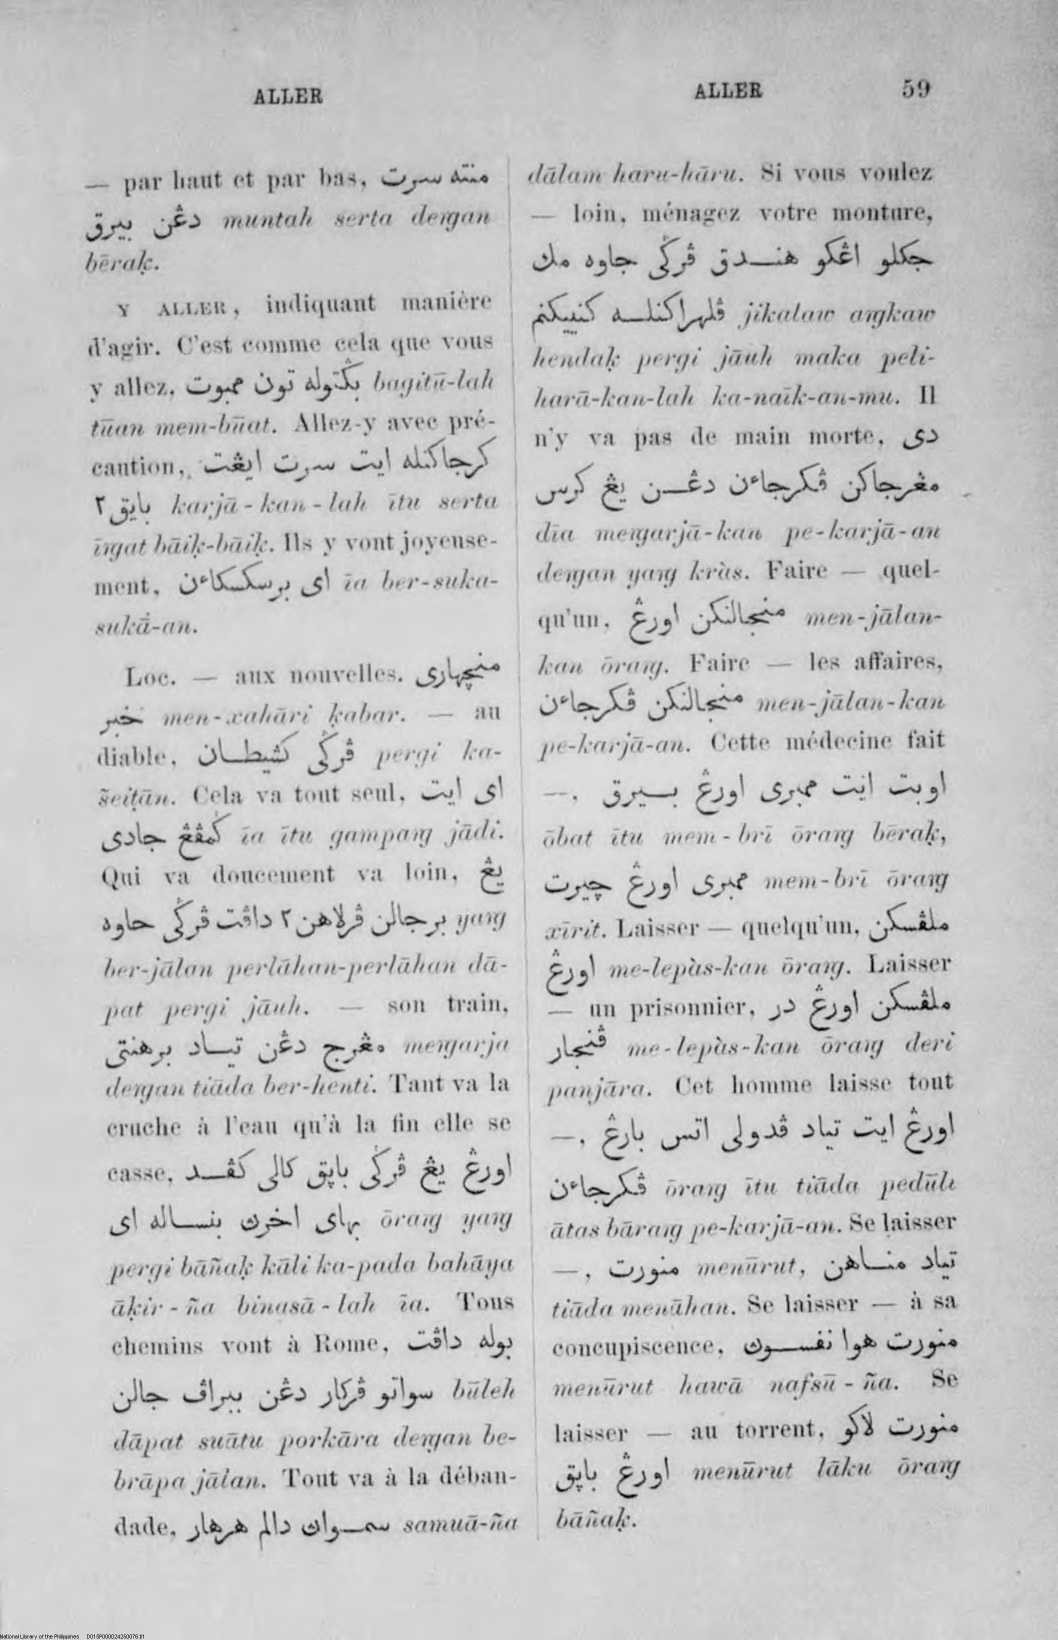 ALLER
ALLER 59
— par haut et par bas, منته سرت
دڠن بيرق muntah serta deṛgan
bēraḳ.
Y ALLER, indiquant manière
d'agir. C'est comme cela que vous
y allez, بڬتوله تون ممبوت bagitū-lah
tūan mem-būat. Allez-y avec pré-
caution, كرجاكنله ايت سرت ايڠت
بايق٢ karjā-kan-lah ītu serta
īṛgat bāiḳ-bāiḳ. Ils y vont joyeuse-
ment, اى برسكسكاءن īa ber-suka-
sukā-an.
Loc. — aux nouvelles, منچهارى
خبر men-xahāri ḳabar. — au
diable, ڤرڬى كشيطان pergi ka-
šeiṭān. Cela va tout seul, اى ايت
ڬمڤڠ جادى īa ītu gampaṛg jādi.
Qui va doucement va loin, يڠ
برجالن ڤرلاهن٢ داڤت ڤرڬى جاوه yaṛg
ber-jālan perlāhan-perlāhan dā-
pat pergi jāuh. — son train,
مڠرج دڠن تياد برهنتى meṛgarja
deṛgan tiāda ber-henti. Tant va la
cruche à l'eau qu'à la fin elle se
casse, اورڠ يڠ ڤرڬى باڽق كالى كڤد
بهاى اخرڽ بنساله اى ōraṛg yaṛg
pergi bāñaḳ kāli ka-pada bahāya
āḳir-ña binasā-lah īa. Tous
chemins vont à Rome, بوله داڤت
سواتو ڤركار دڠن ببراڤ جالن būleh
dāpat suātu porkāra deṛgan be-
brāpa jālan. Tout va à la déban-
dade, سموان دالم هرهار samuā-ña
dālam haru-hāru. Si vous voulez
— loin, ménagez votre monture,
جكلو اڠكو هندق ڤرڬى جاوه مك
ڤلهراكنله كنييكنم jikalaw aṛgkaw
hendaḳ pergi jāuh maka peli-
harā-kan-lah ka-naīk-an-mu. Il
n'y va pas de main morte, دى
مڠرجاكن ڤكرجاءن دڠن يڠ كرس
dīa meṛgarjā-kan pe-karjā-an
deṛgan yaṛg kràs. Faire — quel-
qu'un, منجالنكن اورڠ men-jālan-
kan ōraṛg. Faire — les affaires,
منجالنكن ڤكرجاءن men-jālan-kan
pe-karjā-an. Cette médecine fait
—, اوبت ايت ممبرى اورڠ بيرق
ōbat ītu mem-brī ōraṛg bēraḳ,
ممبرى اورڠ چيرت mem-brī ōraṛg
xīrit. Laisser — quelqu'un, ملڤسكن
اورڠ me-lepàs-kan ōraṛg. Laisser
— un prisonnier, ملڤسكن اورڠ در
ڤنجار me-lepàs-kan ōraṛg deri
panjāra. Cet homme laisse tout
—, اورڠ ايت تياد ڤدولى اتس بارڠ
ڤكرجاءن ōraṛg ītu tiāda pedūli
ātas bāraṛg pe-karjā-an. Se laisser
—, منورت menūrut, تياد مناهن
tiāda menāhan. Se laisser — à sa
concupiscence, منورت هوا نفسوڽ
menūrut hawā nafsū-ña. Se
laisser — au torrent, منورت لاكو
اورڠ باڽق menūrut lāku ōraṛg
bāñaḳ.
National Library of the Philippines